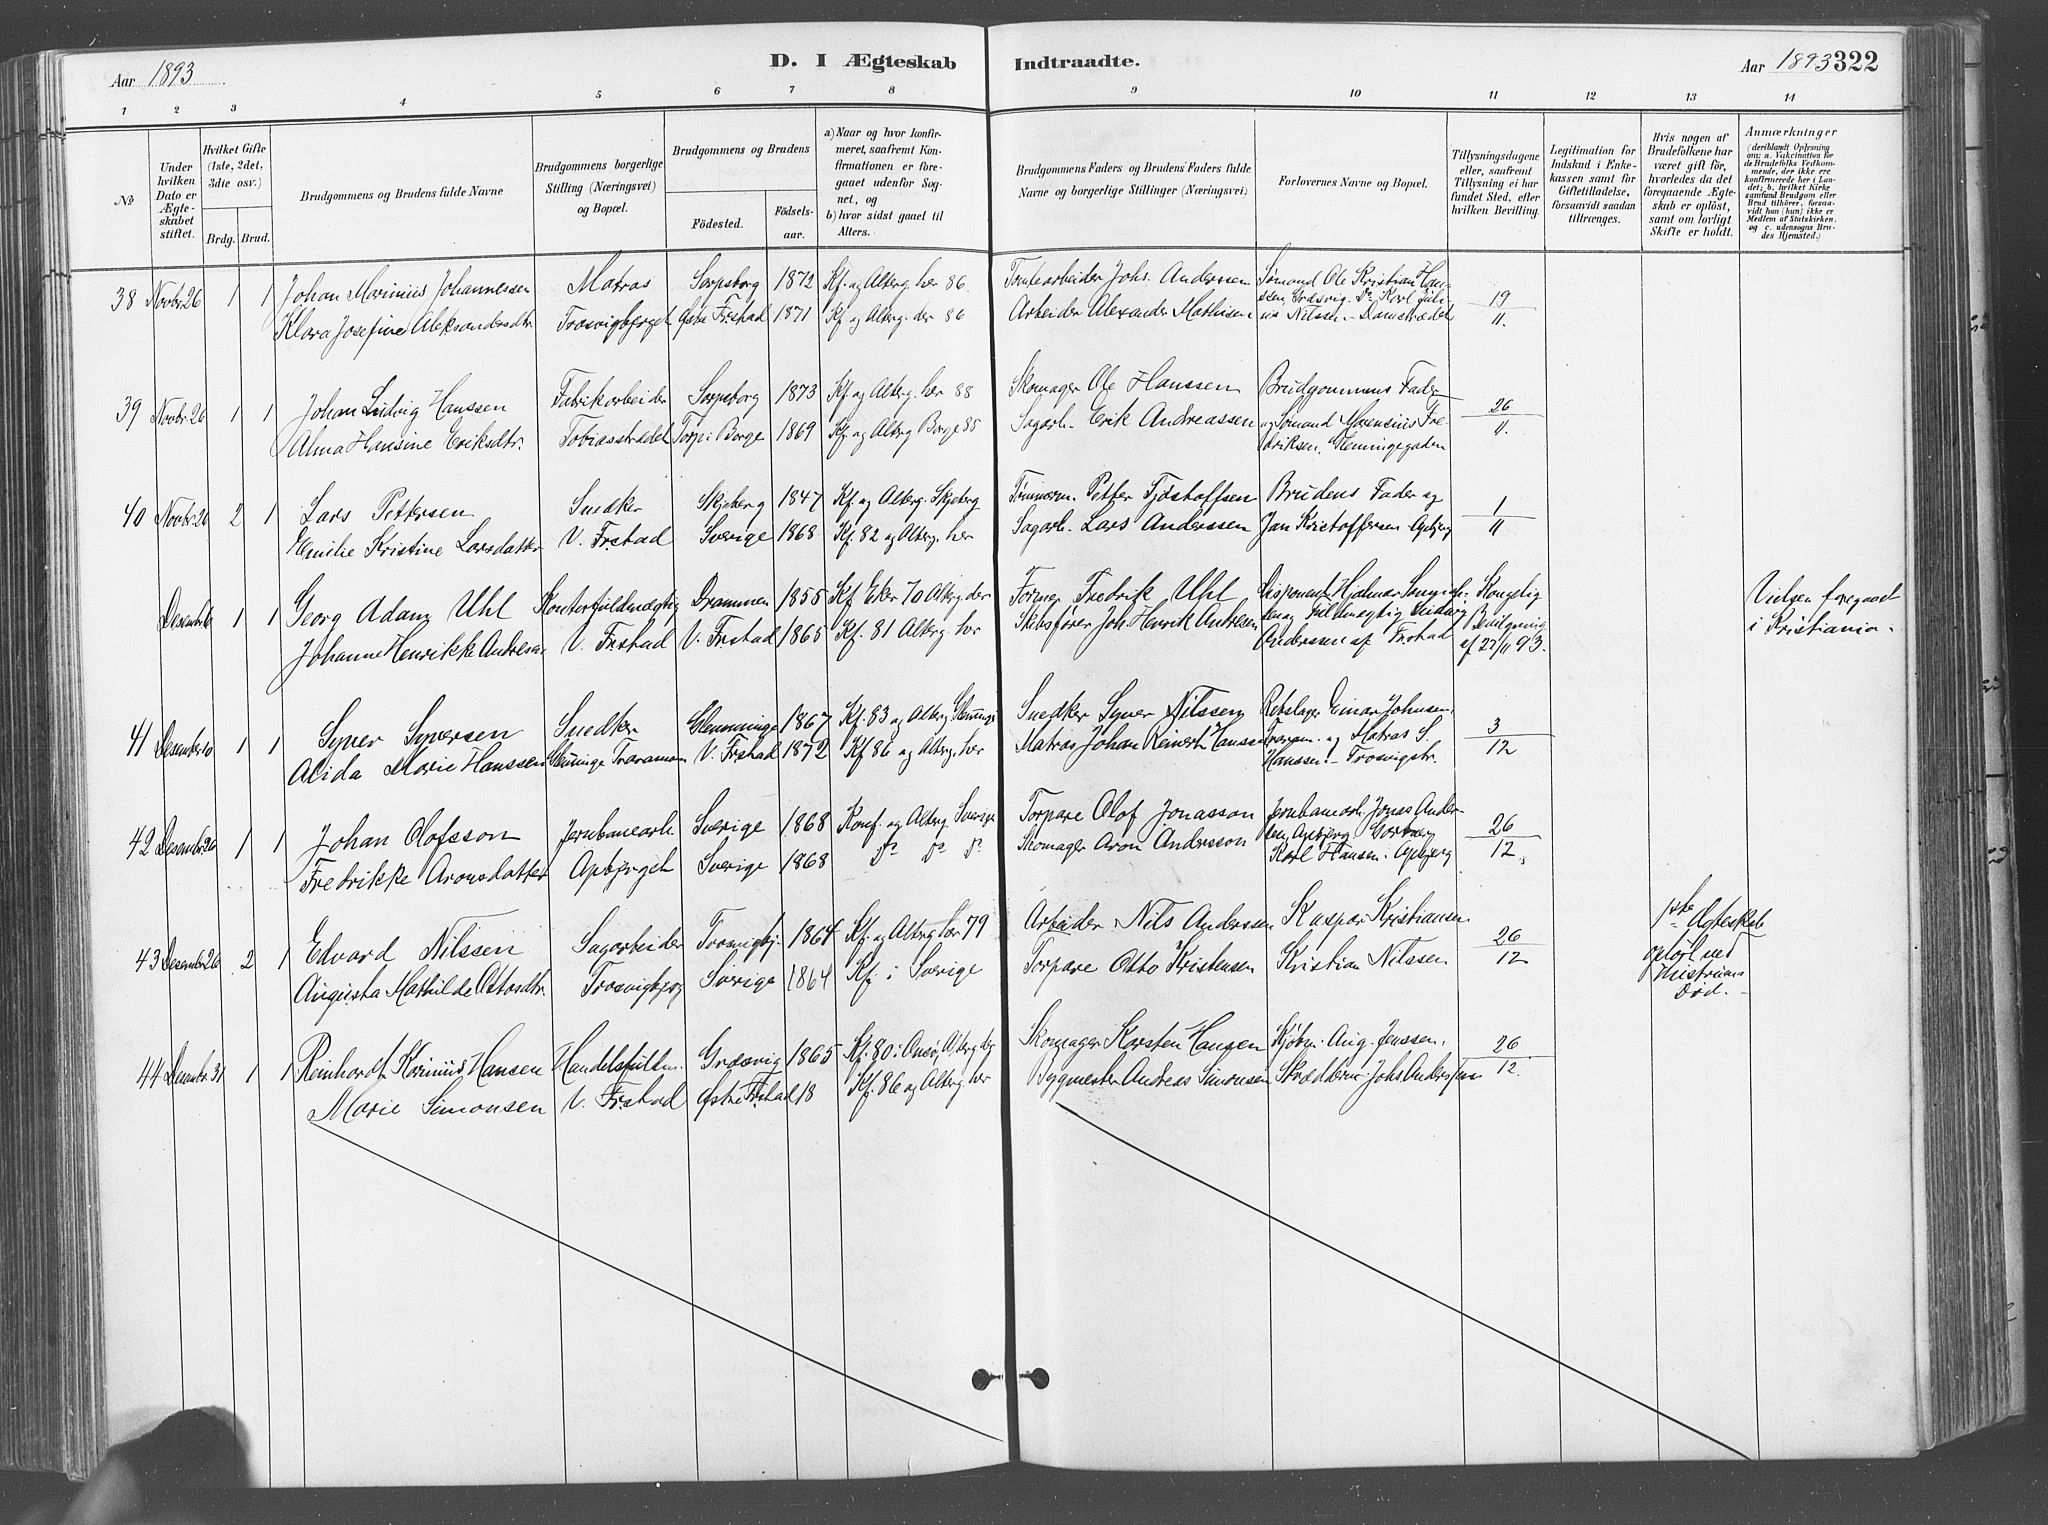 Aar 1893
D. I Ægteskab Indtraadte.
Aar 1893 322
1 2 3 4 5 6 7 8 9 10 11 12 13 14
No
Under hvilken Dato er Ægteskabet stiftet.
Hvilket Gifte (1ste, 2det, 3die osv.)
Brdg. Brud.
Brudgommens og Brudens fulde Navne
Brudgommens borgerlige Stilling (Næringsvei) og Bopæl.
Brudgommens og Brudens
Födested.
Födselsaar.
a) Naar og hvor konfirmeret, saafremt Konfirmationen er foregaaet udenfor Sognet, og
b) hvor sidst gaaet til Alters.
Brudgommens Faders og Brudens Faders fulde Navne og borgerlige Stillinger (Næringsvei)
Forlovernes Navne og Bopæl.
Tillysningsdagene eller, saafremt Tillysning ei har fundet Sted, efter hvilken Bevilling.
Legitimation for Indskud i Enkekassen samt for Giftetilladelse, forsaavidt saadan tiltrænges.
Hvis nogen af Brudefolkene har været gift før, hvorledes da det foregaaende Ægteskab er oplöst, samt om lovligt Skifte er holdt.
Anmærkninger (deriblandt Oplysning om: a. Vakcination for de Brudefolks Vedkommende, der ikke ere konfirmerede her i Landet; b. hvilket Kirkesamfund Brudgom eller Brud tilhörer, forsaavidt han (hun) ikke er Medlem af Statskirken, og c. udensogns Brudes Hjemsted.)
38 Novbr 26 1 1 Johan Marinius Johannessen Matros Sarpsborg 1872 Kf. og Alterg. her 86 Tomtearbeider Johs. Anderssen Sømand Ole Kristian Hanssen, Græsvig. Do Karl Julius Nilsen - Damstrædet 19/11.
Klara Josefine Aleksandersdtr. Trosvigbjerget Østre Frstad 1871 Kf og Alterg. der 86 Arbeider Alexander Mathisen
39 Novbr 26 1 1 Johan Ludvig Hanssen Fabrikarbeider Sarpsborg 1873 Kf og Alterg. her 88 Skomager Ole Hanssen Brudgommens Fader 26/11.
Alma Hansine Eriksdtr. Tobiasstrædet Torp i Borge 1869 Kf. og Alterg Borge 85 Sagarb. Erik Andreassen og Sømand Fredriksen, Glemmingegaden
40 Novbr 26 2 1 Lars Pettersen Snedker Skjeberg 1847 Kf og Alterg. Skjeberg Tømmerm. Petter Tjøstoffsen Brudens Fader og 1/11
Emilie Kristine Larsdatter V. Frstad Sverige 1868 Kf. 82 og Alterg. her Sagarb. Lars Anderssen Jan Kristoffersen Apbjerg
Desember 6 1 1 Georg Adam Uhl Kontorfuldmægtig Drammen 1855 Kf Eker 70 Alterg. der Former Fredrik Uhl Disponent Hjalmar Kongelig Bevilgning af 22/11 93. Vielsen foregaaet i Kristiania.
Johanne Henrikke Andresen V. Frstad V. Frstad 1865 Kf. 81 Alterg. her Skibsfører Joh. Henrik Andresen og Fuldmægtig Ludvig Anderssen af Frstad
41 Desember 10 1 1 Syver Syversen Snedker Glemminge 1867 Kf. 83 og Alterg. Glemminge Snedker Syver Nilssen Rebslager Einar Johnsen, 3/12
Alida Marie Hanssen Glemminge Traramoen V. Frstad 1872 Kf 86 og Alterg. her Matros Johan Reinert Hanssen Traram. og Matros S. Hanssen - Trosvigstr.
42 Desember 26 1 1 Johan Olofsson Jernbanearb. Sverige 1868 Konf. og Alterg. Sverige Torpare Olof Jonasson Jernbanearb. Jonas Andersen, Apbjerg 26/12.
Fredrikke Aronsdatter Apbjerget Sverige 1868 do do do Skomager Aron Andersson Karl Hansen. Apbjerg
43 Desember 26 2 1 Edvard Nilssen Sagarbeider Trosvigbj. 1864 Kf. og Alterg her 79 Arbeider Nils Anderssen Kaspar Kristiansen 26/12 1ste Ægteskab opløst ved Hustruens Død.
Augusta Mathilde Ottosdtr. Trosvigbjerg Sverige 1864 Kf. i Sverige Torpare Otto Kristensen Kristian Nilssen
44 Desembr. 31 1 1 Reinhardt Karinius Hansen Handelsfuldm. Græsvig 1865 Kf. 80 i Onsø, Alterg. der Skomager Karsten Hansen Kjøbm. Aug. Jenssen. 26/12.
Marie Simonsen V. Frstad Østre Frstad 18 Kf. 86 og Alterg. her Bygmester Andreas Simonsen Skrædderm. Johs Anderssen